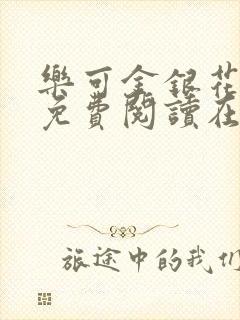 樂可金銀花
免費閱讀在
旅途中的我们